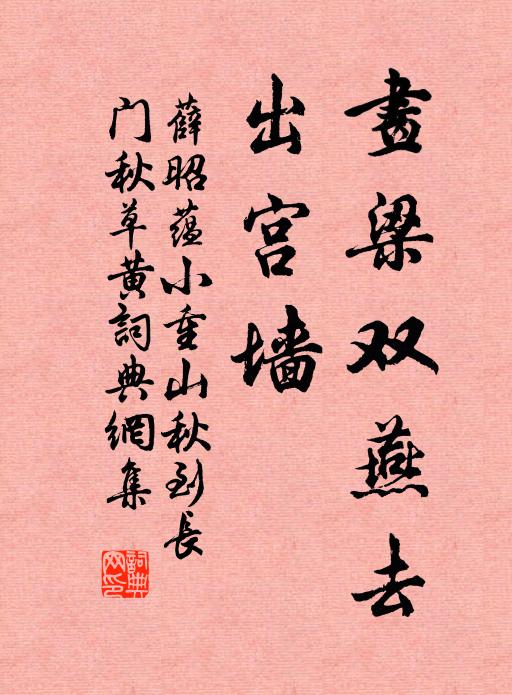 畫梁双燕去
出宫墙
薛昭蕴小重山秋到長
门秋草黄詞典網集
詞典網印